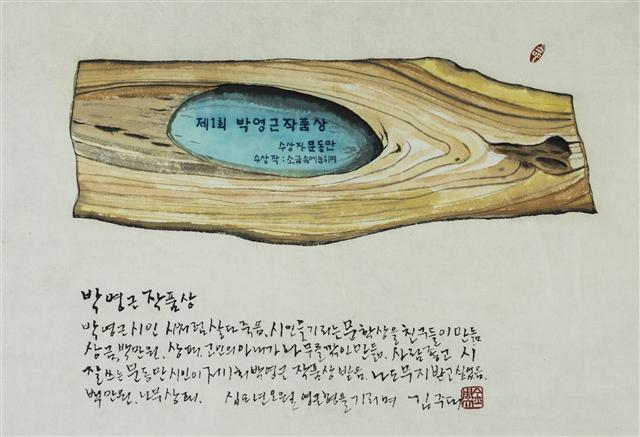 제1회 박영근작품상
수상자 문동만
수상작 : 소금속에눕히며
박영근작품상
박영근시인 시처럼 살다죽음. 시인을기리는문학상을친구들이만듦
상금,백만원. 상패,고인의아내가나무를깎아만듦. 사람좋고 시
잘쓰는문동만시인이제1회박영근 작품상받음. 나도무지받고싶었음.
백만원. 나무상패. 십오년오월 영근형을기리며 김주대